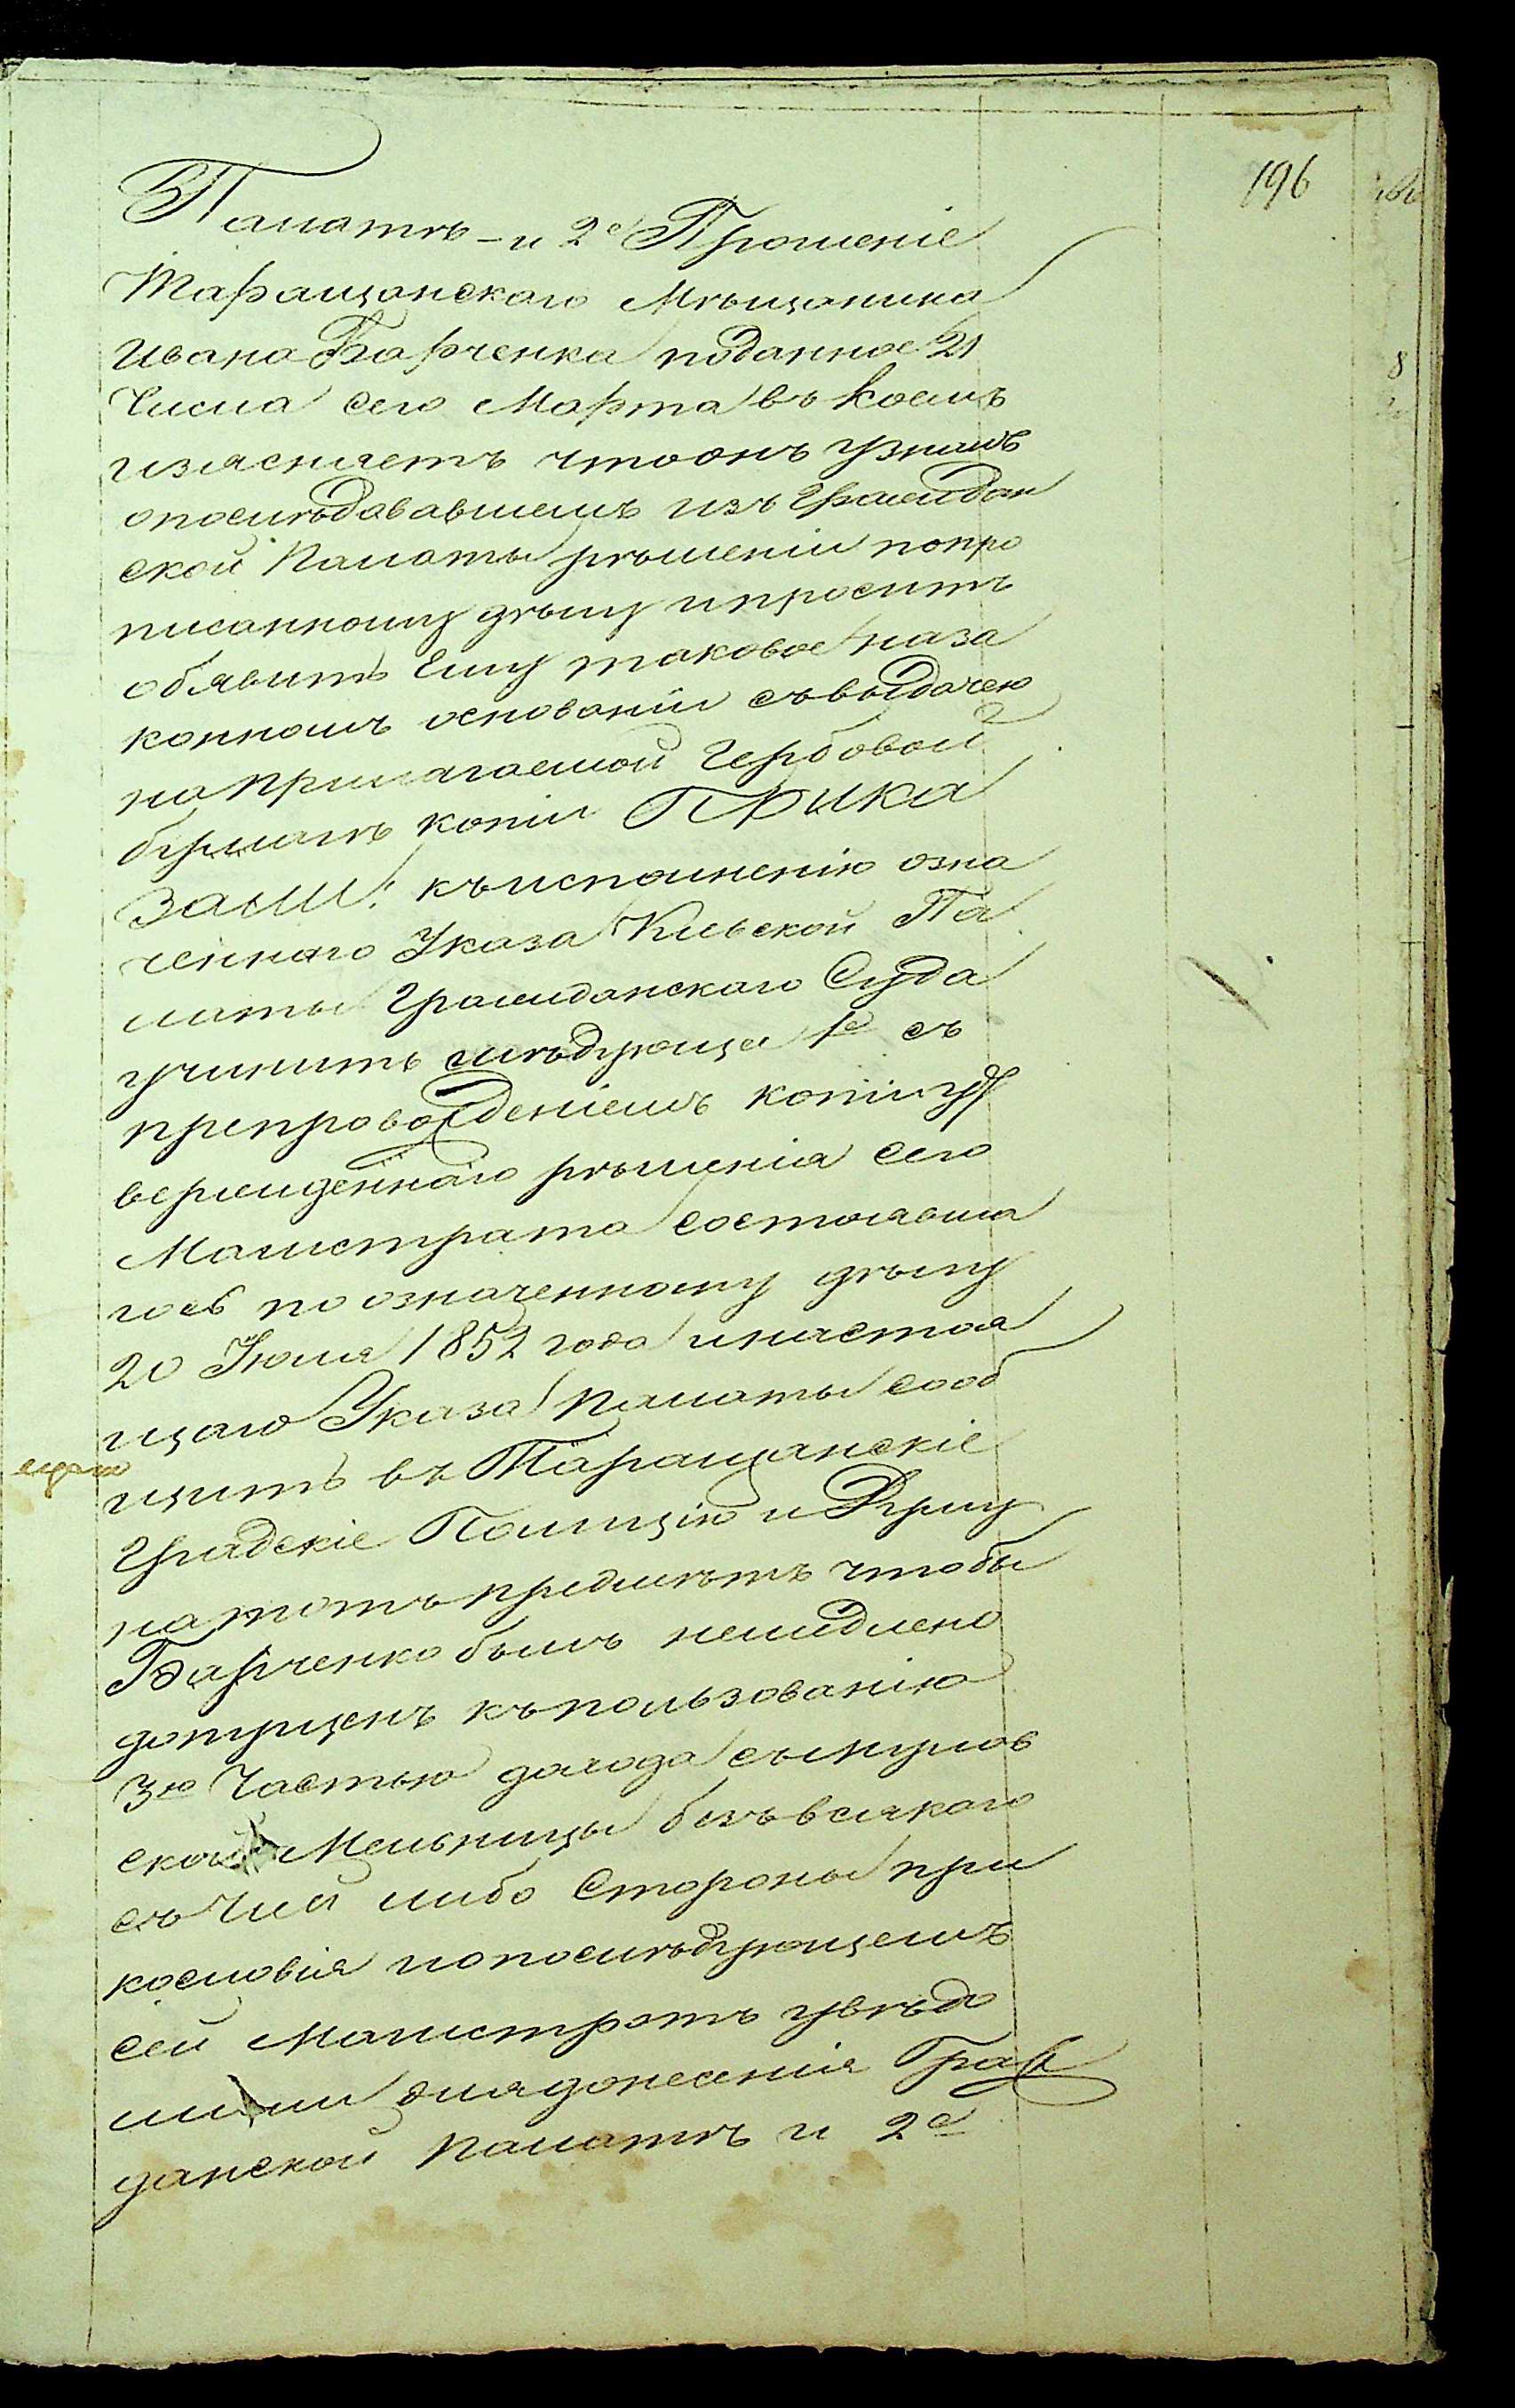 196
Палатѣ – и 2е Прошеніе
Таращанскаго Мѣщанина
Ивана Барченка поданное 21
Числа сего Марта въ коемъ
изясняетъ что онъ узналъ
опослѣдававшемъ изъ Граждан
ской Палаты рѣшеніи попро
писанному дѣлу ипроситъ
обявить Ему таковое наза
конномъ основаніи съвыдачею
на прилагаемой Гербовой
бумагѣ копіи ПРИКА
ЗАЛИ: къисполненію озна
ченнаго Указа Кіевской Па
латы Гражданскаго Суда
учинить слѣдующе 1е съ
препровожденіемъ копіи ут
вержденнаго рѣшенія сего
Магистрата состоявша
гось по означенному дѣлу
20 Іюля 1852 года инастоя
щаго Указа Палаты сооб
щить въ Таращанскіе
Градскіе Полицію и Думу
на тотъ предметъ чтобы
Барченко былъ немедлено
допущенъ къ пользованію
3ю Частью дохода съ
ской Мельницы безъ всякаго
съ Чией либо Стороны при
кословія и опослѣдующемъ
сей Магистратъ увѣдо
мили для донесенія Граж
данской Палатѣ и 2е